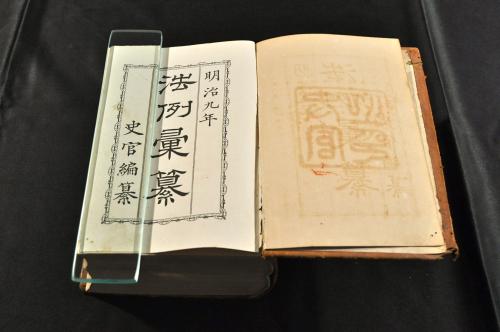 明治九年
法例彙纂
史官編纂